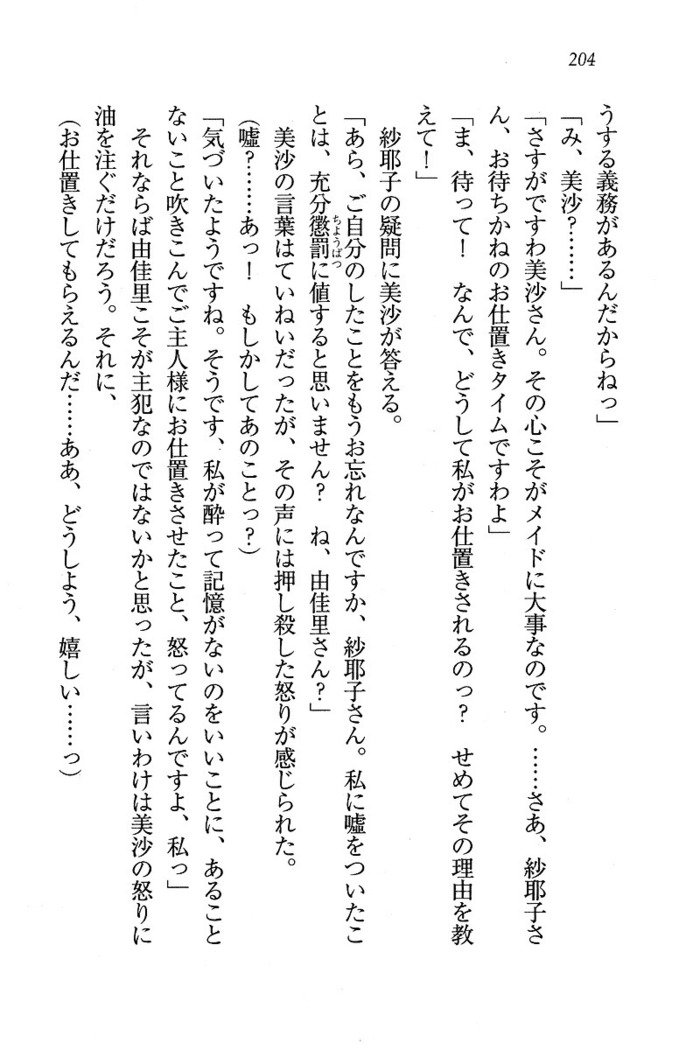 204
うする義務があるんだからねっ」
「み、美沙？……」
「さすがですわ美沙さん。その心こそがメイドに大事なのです。……さあ、紗耶子さ
ん、お待ちかねのお仕置きタイムですわよ」
「ま、待って！　なんで、どうして私がお仕置きされるのっ？　せめてその理由を教
えて！」
　紗耶子の疑問に美沙が答える。
「あら、ご自分のしたことをもうお忘れなんですか、紗耶子さん。私に嘘をついたこ
とは、充分懲罰に値すると思いません？　ね、由佳里さん？」
ちょうばつ
　美沙の言葉はていねいだったが、その声には押し殺した怒りが感じられた。
（嘘？……あっ！　もしかしてあのことっ？）
「気づいたようですね。そうです、私が酔って記憶がないのをいいことに、あること
ないこと吹きこんでご主人様にお仕置きさせたこと、怒ってるんですよ、私っ」
　それならば由佳里こそが主犯なのではないかと思ったが、言いわけは美沙の怒りに
油を注ぐだけだろう。それに、
（お仕置きしてもらえるんだ……ああ、どうしよう、嬉しい……っ）